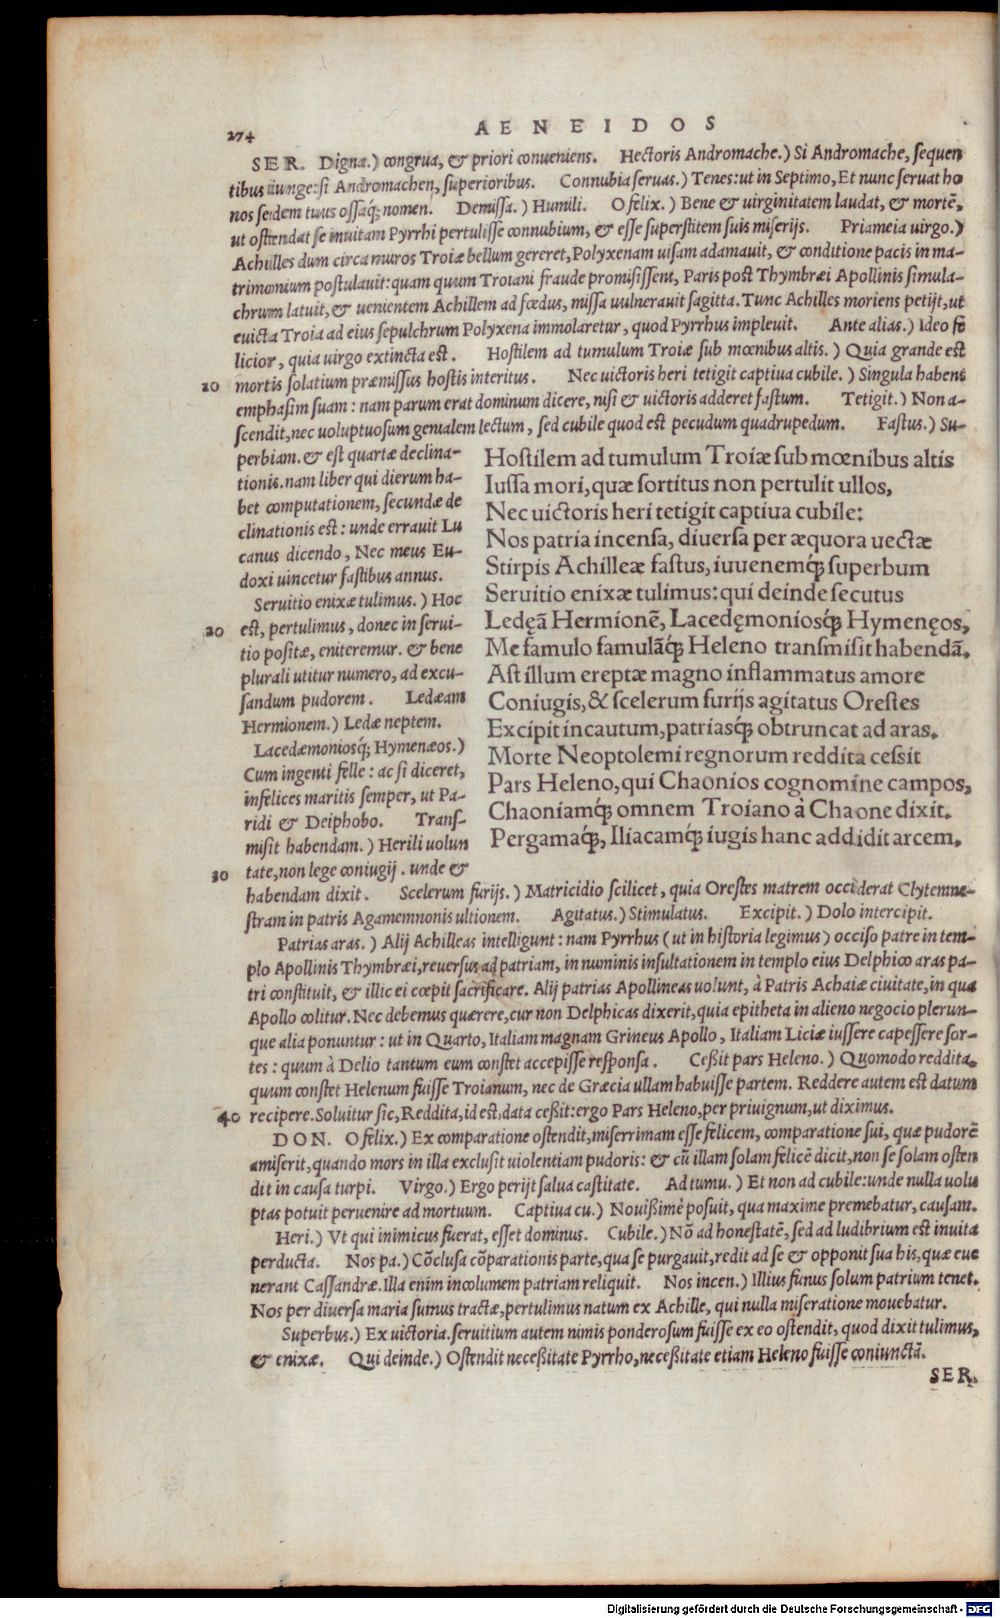 274
AENEIDOS
SER. Digna.) congrua, & priori conueniens. Hectoris Andromache.) Si Andromache, sequen
tibus iunge: si Andromachen, superioribus. Connubia seruas.) Tenes: ut in Septimo, Et nunc seruat ho
nos sedem tuus ossaq́; nomen. Demissa.) Humili. O felix.) Bene & uirginitatem laudat, & mortē,
ut ostendat se inuitam Pyrrhi pertulisse connubium, & esse superstitem suis miserijs. Priameia uirgo.)
Achilles dum circa muros Troiæ bellum gereret, Polyxenam uisam adamauit, & conditione pacis in ma-
trimonium postulauit: quam quum Troiani fraude promisissent, Paris post Thymbræi Apollinis simula-
chrum latuit, & uenientem Achillem ad fœdus, missa uulnerauit sagitta. Tunc Achilles moriens petijt, ut
euicta Troia ad eius sepulchrum Polyxena immolaretur, quod Pyrrhus impleuit. Ante alias.) Ideo fe
licior, quia uirgo extincta est. Hostilem ad tumulum Troiæ sub mœnibus altis.) Quia grande est
10 mortis solatium præmissus hostis interitus. Nec uictoris heri tetigit captiua cubile.) Singula habent
emphasim suam: nam parum erat dominum dicere, nisi & uictoris adderet fastum. Tetigit.) Non a-
scendit, nec uoluptuosum genialem lectum, sed cubile quod est pecudum quadrupedum. Fastus.) Su-
perbiam. & est quartæ declina-
tionis. nam liber qui dierum ha-
bet computationem, secundæ de
clinationis est: unde errauit Lu
canus dicendo, Nec meus Eu-
doxi uincetur fastibus annus.
Seruitio enixæ tulimus.) Hoc
20 est, pertulimus, donec in serui-
tio positæ, eniteremur. & bene
plurali utitur numero, ad excu-
sandum pudorem. Ledæam
Hermionem.) Ledæ neptem.
Lacedæmoniosq́; Hymenæos.)
Cum ingenti felle: ac si diceret,
infelices maritis semper, ut Pa-
ridi & Deiphobo. Trans-
misit habendam.) Herili uolun
30 tate, non lege coniugij. unde &
Hostilem ad tumulum Troiæ sub mœnibus altis
Iussa mori, quæ sortitus non pertulit ullos,
Nec uictoris heri tetigit captiua cubile:
Nos patria incensa, diuersa per æquora uectæ
Stirpis Achilleæ fastus, iuuenemq́; superbum
Seruitio enixæ tulimus: qui deinde secutus
Ledęā Hermionē, Lacedęmoniosq́; Hymenęos,
Me famulo famulāq́; Heleno transmisit habendā.
Ast illum ereptæ magno inflammatus amore
Coniugis, & scelerum furijs agitatus Orestes
Excipit incautum, patriasq́; obtruncat ad aras.
Morte Neoptolemi regnorum reddita cessit
Pars Heleno, qui Chaonios cognomine campos,
Chaoniamq́; omnem Troiano à Chaone dixit.
Pergamaq́;, Iliacamq́; iugis hanc addidit arcem.
habendam dixit. Scelerum furijs.) Matricidio scilicet, quia Orestes matrem occiderat Clytemne-
stram in patris Agamemnonis ultionem. Agitatus.) Stimulatus. Excipit.) Dolo intercipit.
Patrias aras.) Alij Achilleas intelligunt: nam Pyrrhus (ut in historia legimus) occiso patre in tem-
plo Apollinis Thymbræi, reuersus ad patriam, in numinis insultationem in templo eius Delphico aras pa-
tri constituit, & illic ei cœpit sacrificare. Alij patrias Apollineas uolunt, à Patris Achaiæ ciuitate, in qua
Apollo colitur. Nec debemus quærere, cur non Delphicas dixerit, quia epitheta in alieno negocio plerun-
que alia ponuntur: ut in Quarto, Italiam magnam Grineus Apollo, Italiam Liciæ iussere capessere sor-
tes: quum à Delio tantum eum constet accepisse responsa. Ceßit pars Heleno.) Quomodo reddita,
quum constet Helenum fuisse Troianum, nec de Græcia ullam habuisse partem. Reddere autem est datum
40 recipere. Soluitur sic, Reddita, id est, data ceßit: ergo Pars Heleno, per priuignum, ut diximus.
DON. O felix.) Ex comparatione ostendit, miserrimam esse felicem, comparatione sui, quæ pudorē
amiserit, quando mors in illa exclusit uiolentiam pudoris: & cū illam solam felicē dicit, non se solam osten
dit in causa turpi. Virgo.) Ergo perijt salua castitate. Ad tumu.) Et non ad cubile: unde nulla uolu
ptas potuit peruenire ad mortuum. Captiua cu.) Nouißimè posuit, qua maxime premebatur, causam.
Heri.) Vt qui inimicus fuerat, esset dominus. Cubile.) Nō ad honestatē, sed ad ludibrium est inuita
perducta. Nos pa.) Cōclusa cōparationis parte, qua se purgauit, redit ad se & opponit sua his, quæ eue
nerant Cassandræ. Illa enim incolumem patriam reliquit. Nos incen.) Illius funus solum patrium tenet.
Nos per diuersa maria sumus tractæ, pertulimus natum ex Achille, qui nulla miseratione mouebatur.
Superbus.) Ex uictoria. seruitium autem nimis ponderosum fuisse ex eo ostendit, quod dixit tulimus,
& enixæ. Qui deinde.) Ostendit neceßitate Pyrrho, neceßitate etiam Heleno fuisse coniunctā.
SER.
Digitalisierung gefördert durch die Deutsche Forschungsgemeinschaft - DFG